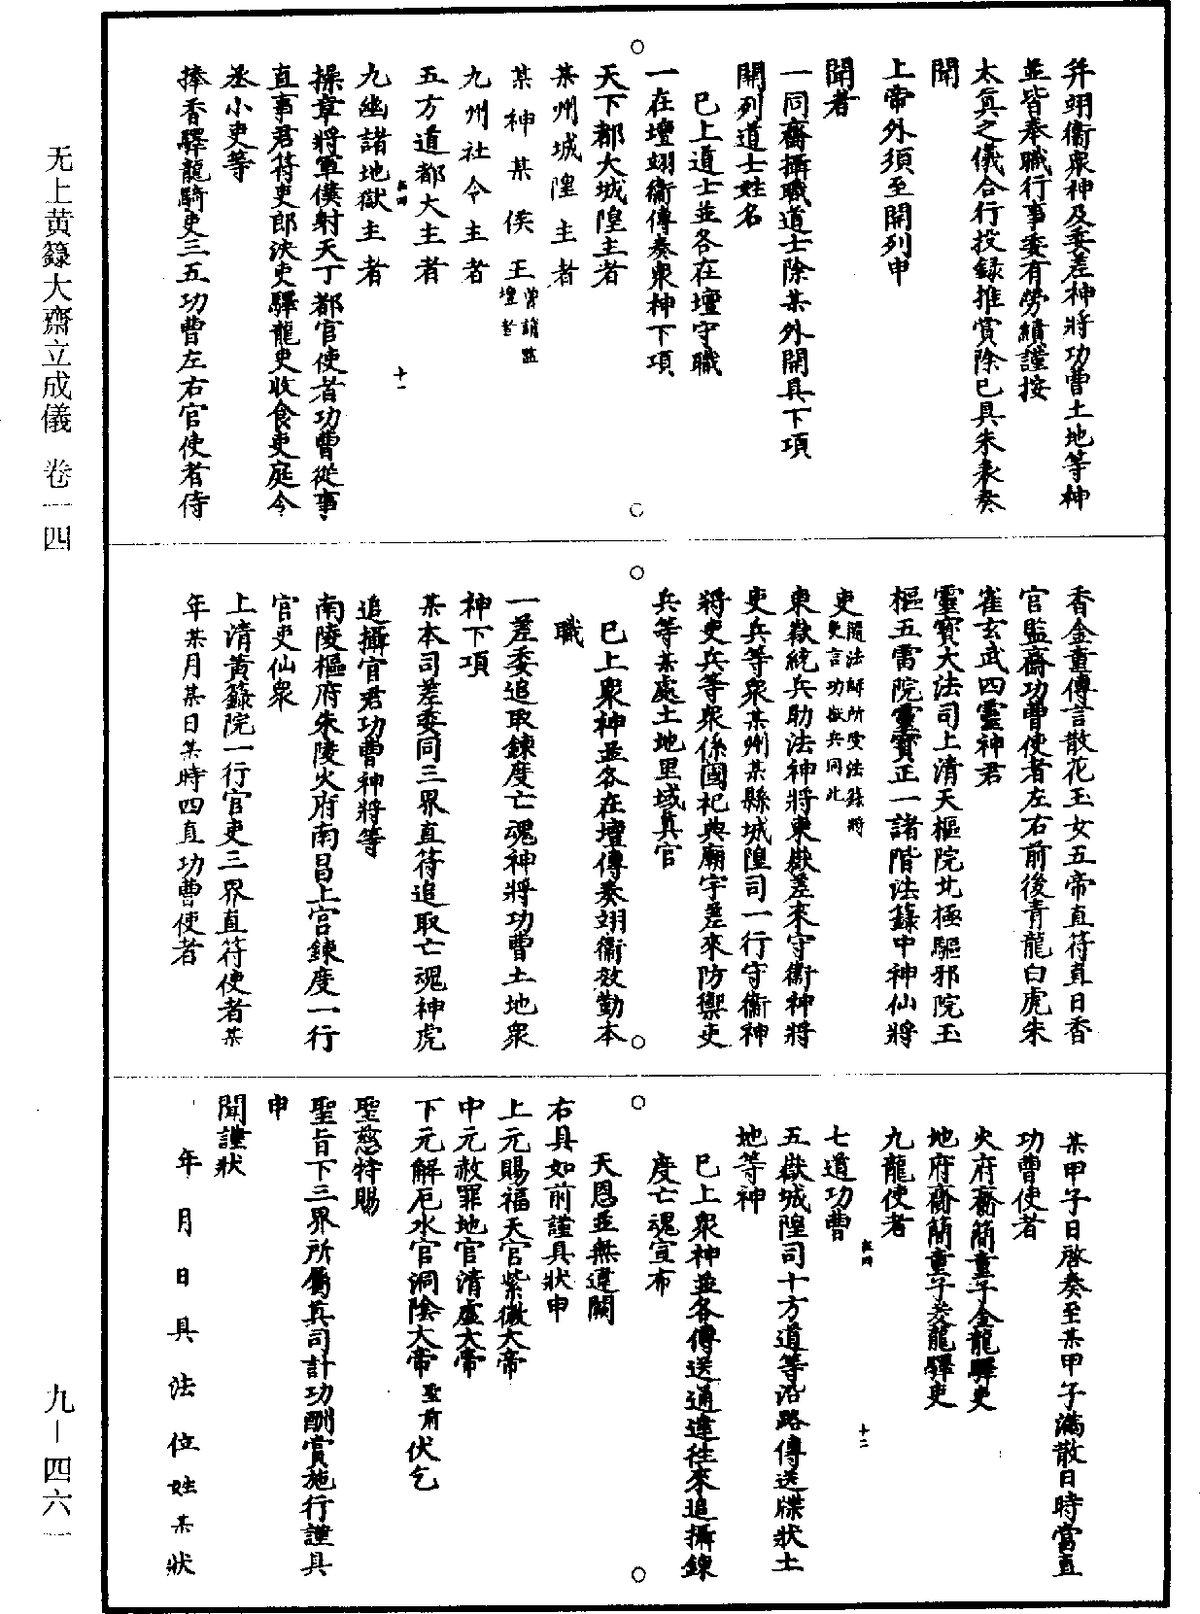 并翊衞衆神及委差神將功曹土地等神
並皆奉職行事委有勞績謹按
太眞之儀合行投録推賞除已具朱表奏
聞
上帝外須至開列申
聞者
一同齋攝職道士除某外開具下項
開列道士姓名
已上道士並各在壇守職
一在壇翊衞傳奏衆神下項
天下都大城隍主者
某州城隍主者
某神某侯王
九州社令主者
五方道都大主者
九幽諸地獄主者
十一
操章將軍僕射天丁都官使者功曹從事
直事君符吏郎決吏驛龍吏收食吏庭令
丞小吏等
捧香驛龍騎吏三五功曹左右官使者侍
香金童傳言散花玉女五帝直符直日香
官監齋功曹使者左右前後青龍白虎朱
雀玄武四靈神君
靈寳大法司上清天樞院北極驅邪院玉
樞五雷院靈寳正一諸階法籙中神仙將
吏隨法師所受法籙將
吏言功嶽兵同此
東嶽統兵助法神將東嶽差來守衞神將
吏兵等衆某州某縣城隍司一行守衞神
將吏兵等衆係國祀典廟宇差來防禦吏
兵等某處土地里域眞官
已上衆神並各在壇傳奏翊衞效勤本
職
一差委追取鍊度亡魂神將功曹土地衆
神下項
某本司差委同三界直符追取亡魂神虎
追攝官君功曹神將等
南陵樞府朱陵火府南昌上宮鍊度一行
官吏仙衆
上清黃籙院一行官吏三界直符使者某
年某月某日某時四直功曹使者
某甲子日啓奏至某甲子滿散日時當直
功曹使者
火府齋簡童子金龍驛吏
地府齋簡童子茭龍驛吏
九龍使者
十二
七道功曹
五嶽城隍司十方道等沿路傳送牒狀土
地等神
已上衆神並各傳送通達往來追攝鍊
度亡魂宣布
天恩並無違闕
右具如前謹具狀申
上元賜福天官紫微大帝
中元赦罪地官清虛大帝
下元解厄水官洞陰大帝聖前伏乞
聖慈特賜
聖旨下三界所屬眞司計功酬賞施行謹具
申
聞謹狀
年月日具法位姓某狀
无上黄籙大齋立成儀 卷一四
九—四六一